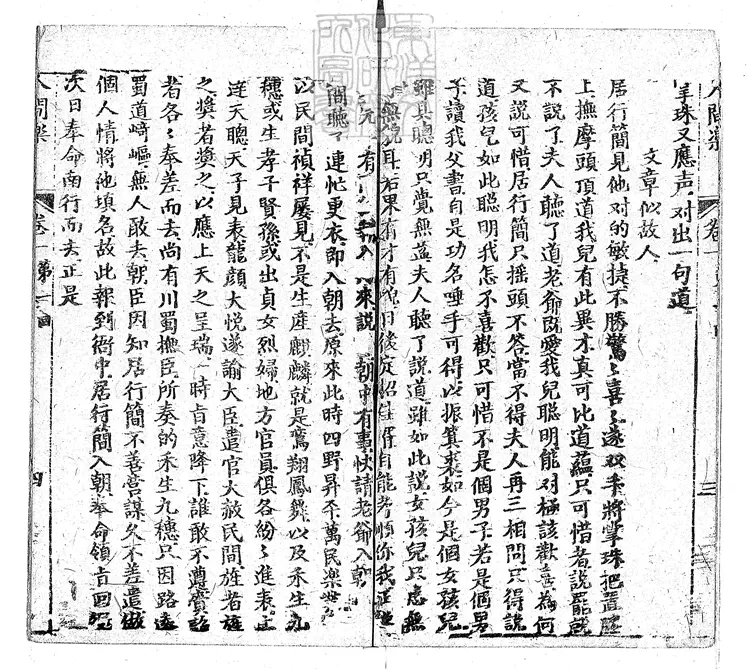 掌珠又應声对出一句道
文章似故人
居行簡見他对的敏捷不勝驚〻喜〻遂双手將掌珠抱置膝
上撫摩頭頂道我兒有此異才真可比道蘊只可惜者說罷就
不說了夫人聽了道老爺既愛我兒聪明能对極該歡喜為何
又說可惜居行簡只摇頭不答當不得夫人再三相問只得說
道孩兒如此聪明我怎不喜歡只可惜不是個男子若是個男
子讀我父書自是功名唾手可得以振箕裘如今是個女孩兒
雖具聰明只覺無益夫人聽了說道雖如此說女孩兒只慮無
無貌耳若果有才有貌日後定招佳婿自能孝順你我正
有 入來說 朝中有事快請老爺入朝
聽了連忙更衣即入朝去原來此時四野昇平萬民樂世
以民間禎祥屡見不是生産麒麟就是鸞翔鳳舞以及禾生九
穗或生孝子賢孫或出貞女烈婦地方官員俱各紛〻進表上
達天聽天子見表龍顔大悅遂諭大臣遣官大赦民間旌者旌
之奬者奬之以應上天之呈瑞一時旨意降下誰敢不遵賫詔
者各〻奉差而去尚有川蜀撫臣所奏的禾生九穗只因路遠
蜀道崎嶇無人敢去朝臣因知居行簡不善營謀久不差遣做
個人情將他填名故此報到衙中居行簡入朝奉命領旨回
次日奉命南行而去正是
人間樂
卷一 第一回
四